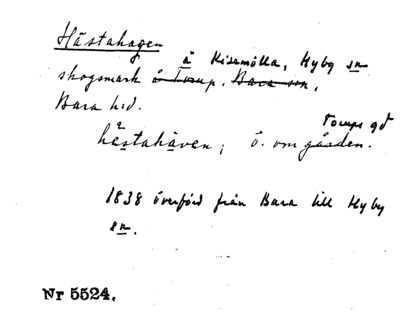 Hästahagen
å Kisamölla, Hyby sn
skogsmark å Torup, Bara sn,
Bara hd.
Torups gd
hästahaven; ö. om gården.
1838 överförd från Bara till Hyby
sn.
Nr 5524.